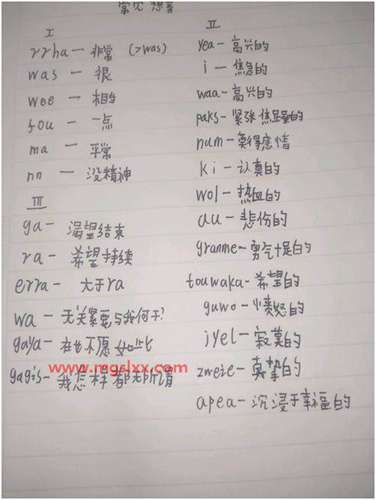 常见
I
rrha — 非常 (>was)
was — 很
wee — 相当
fou — 一点
ma — 平常
nn — 没精神
III
ga — 渴望结束
ra — 希望持续
erra — 大于ra
wa — 无关紧要与我何干?
gaya — 再也不愿如此
gagis — 我怎样都无所谓
II
yea - 高兴的
i - 焦急的
waa - 高兴的
paks - 紧张焦虑的
num - 莫得感情
ki - 认真的
wol - 热血的
au - 悲伤的
granme - 勇气十足的
touwaka - 希望的
guwo - 愤怒的
jyel - 寂寞的
zweie - 真挚的
apea - 沉浸于幸福的
www.mgslxx.com